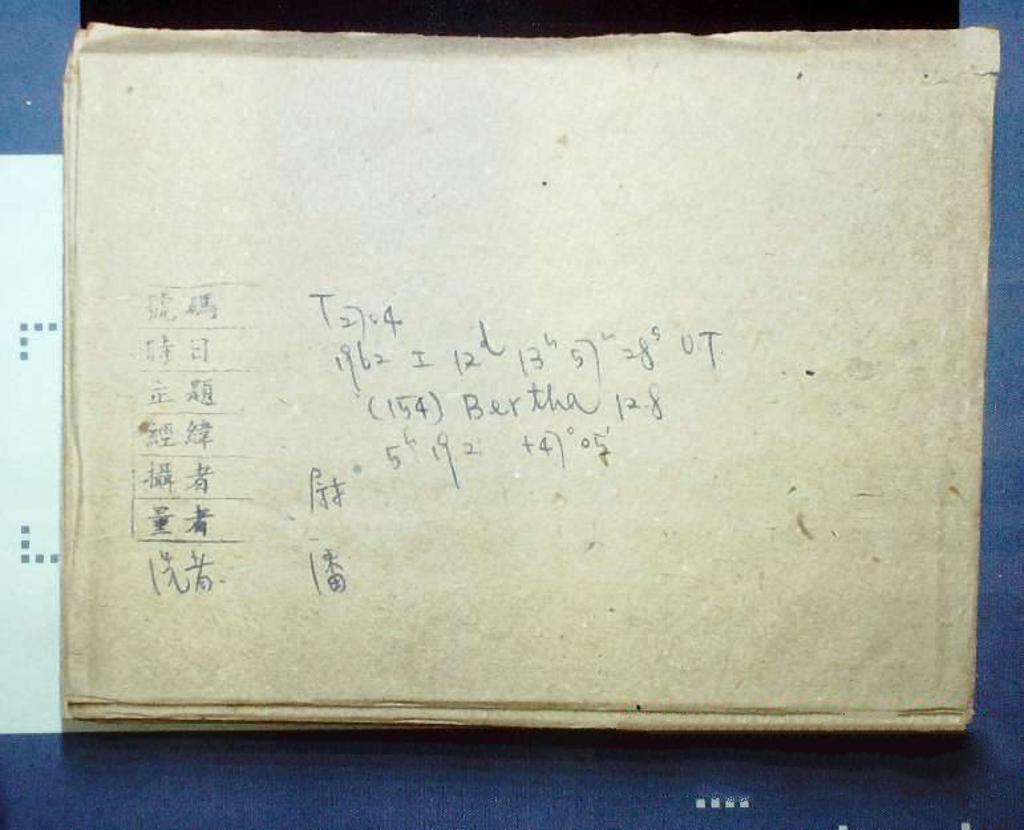 號碼 T2704
時日 1962 I 12d 13h 57m 28s U.T.
主題 (154) Bertha 12.8
經緯 5h 19.2 +47°05'
攝者 尉
量者
洗者 潘